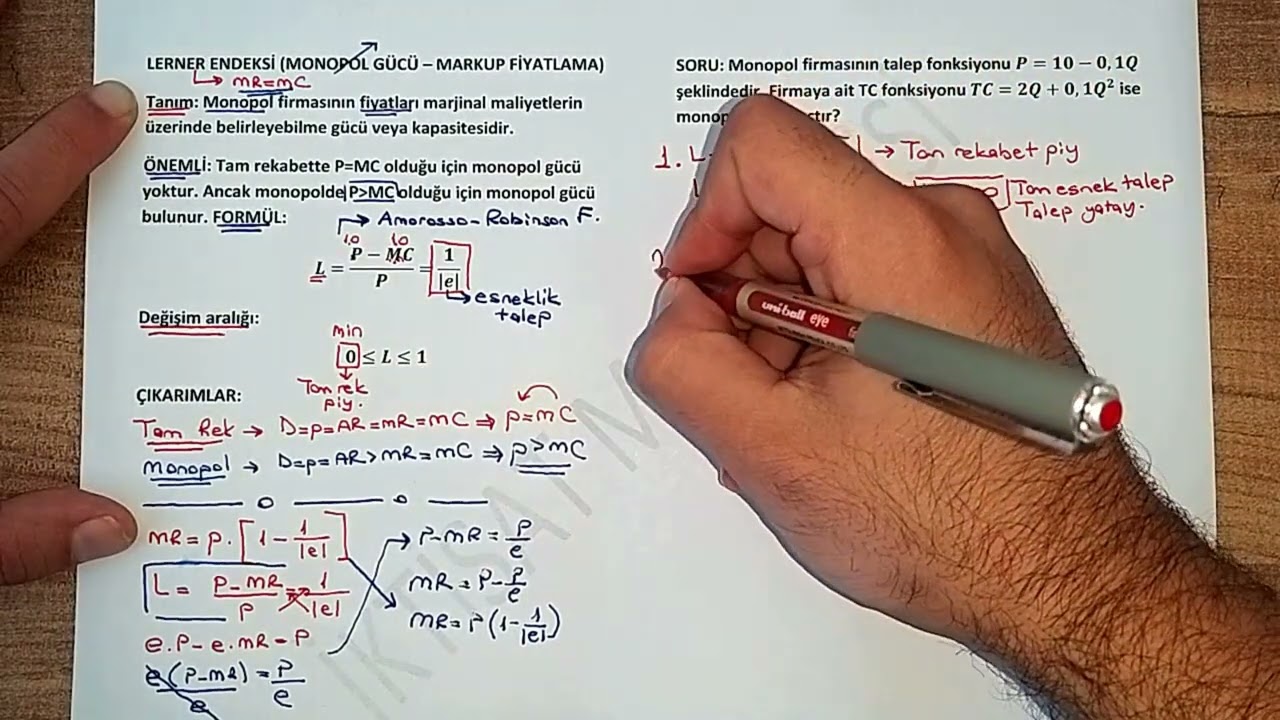 LERNER ENDEKSİ (MONOPOL GÜCÜ – MARKUP FİYATLAMA)
MR=MC
Tanım: Monopol firmasının fiyatları marjinal maliyetlerin
üzerinde belirleyebilme gücü veya kapasitesidir.
ÖNEMLİ: Tam rekabette P=MC olduğu için monopol gücü
yoktur. Ancak monopolde P>MC olduğu için monopol gücü
bulunur. FORMÜL:
Amorosso-Robinson F.
10 10
L = P − MC / P = 1 / |e|
esneklik
talep
Değişim aralığı:
min
0 ≤ L ≤ 1
Tam rek
piy.
ÇIKARIMLAR:
Tam Rek → D=p=AR=MR=MC ⇒ p=MC
Monopol → D=p=AR>MR=MC ⇒ p>MC
MR = P . [1 - 1/|e|]
L = P-MR / P = 1 / |e|
e.P - e.MR = P
e(P-MR) / e = P / e
P-MR = P/e
MR = P - P/e
MR = P(1 - 1/|e|)
SORU: Monopol firmasının talep fonksiyonu P = 10 − 0,1Q
şeklindedir. Firmaya ait TC fonksiyonu TC = 2Q + 0,1Q² ise
1. L → Tam rekabet piy
Tam esnek talep
Talep yatay.
uni-ball eye
İKTİSAT